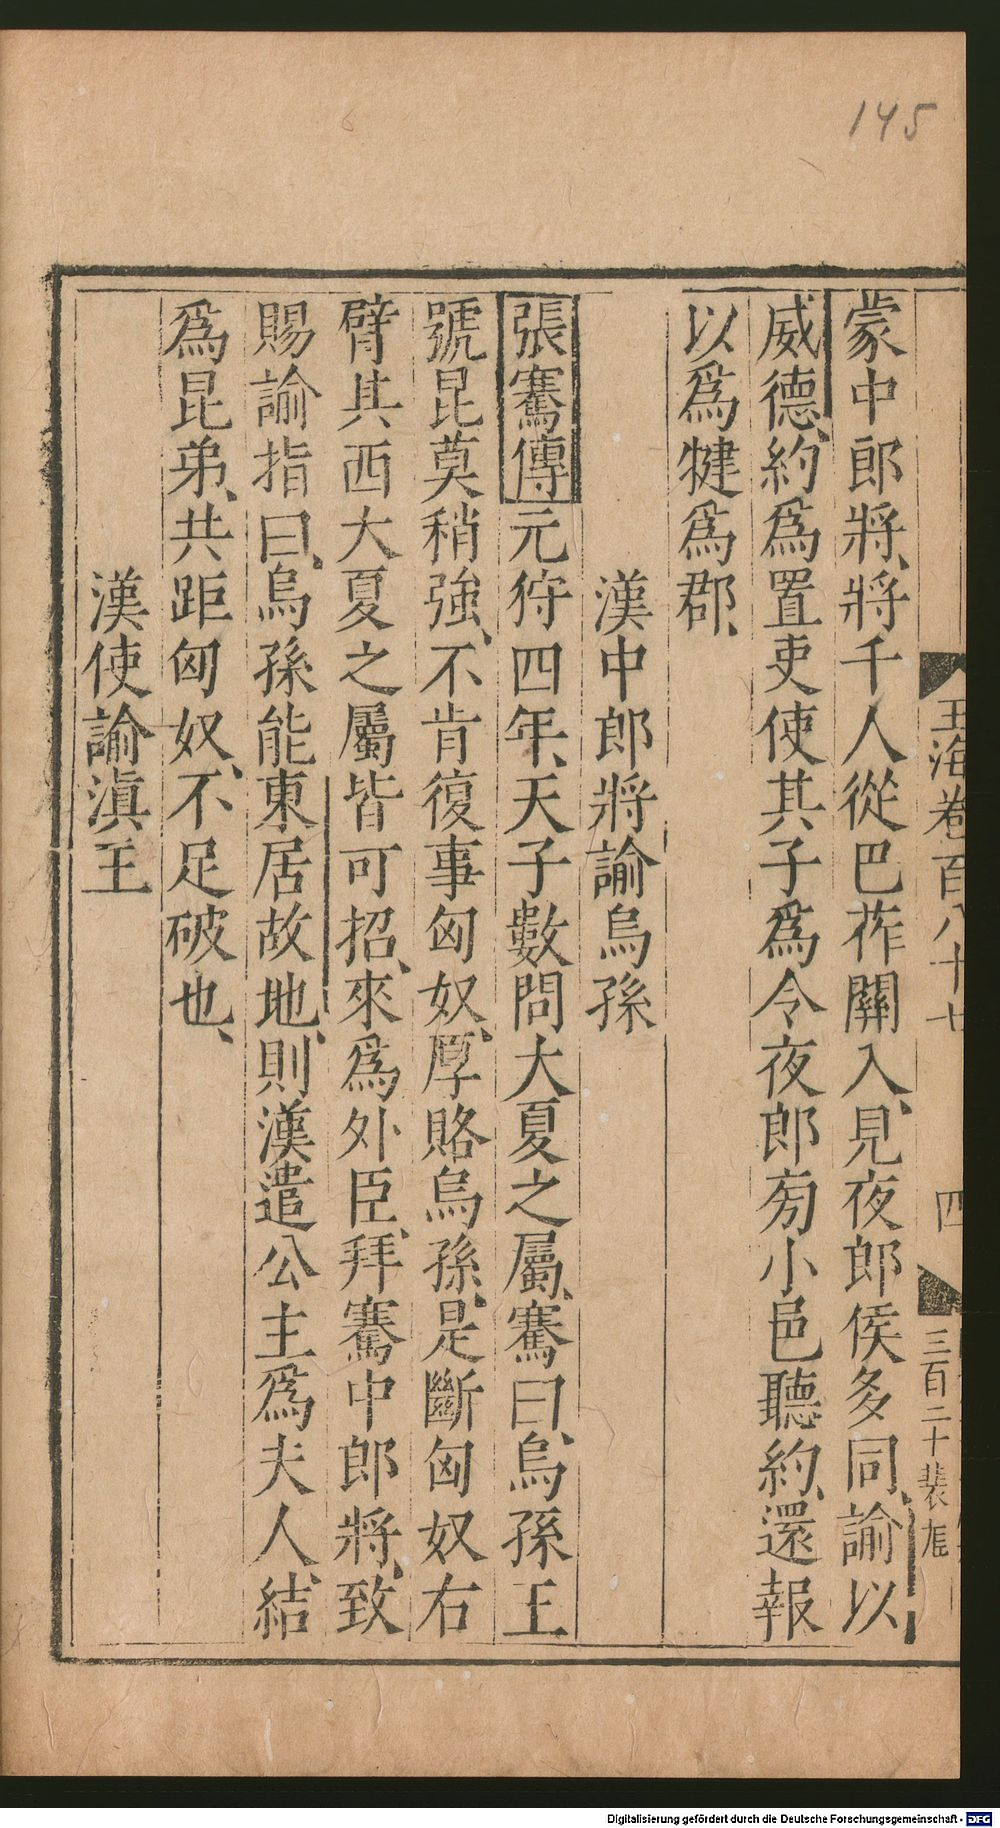 145
玉海卷百八十七
四
三百二十
蒙中郎將、將千人從巴莋關入、見夜郎侯多同、諭以
威德、約爲置吏使其子爲令夜郎旁小邑聽約、還報
以爲犍爲郡、
漢中郎將諭烏孫
張騫傳元狩四年、天子數問大夏之屬、騫曰、烏孫王
號昆莫稍強、不肯復事匈奴、厚賂烏孫、是斷匈奴右
臂其西大夏之屬皆可招、來爲外臣、拜騫中郎將、致
賜諭指曰、烏孫能東居故地、則漢遣公主爲夫人、結
爲昆弟、共距匈奴、不足破也、
漢使諭滇王
Digitalisierung gefördert durch die Deutsche Forschungsgemeinschaft - DFG